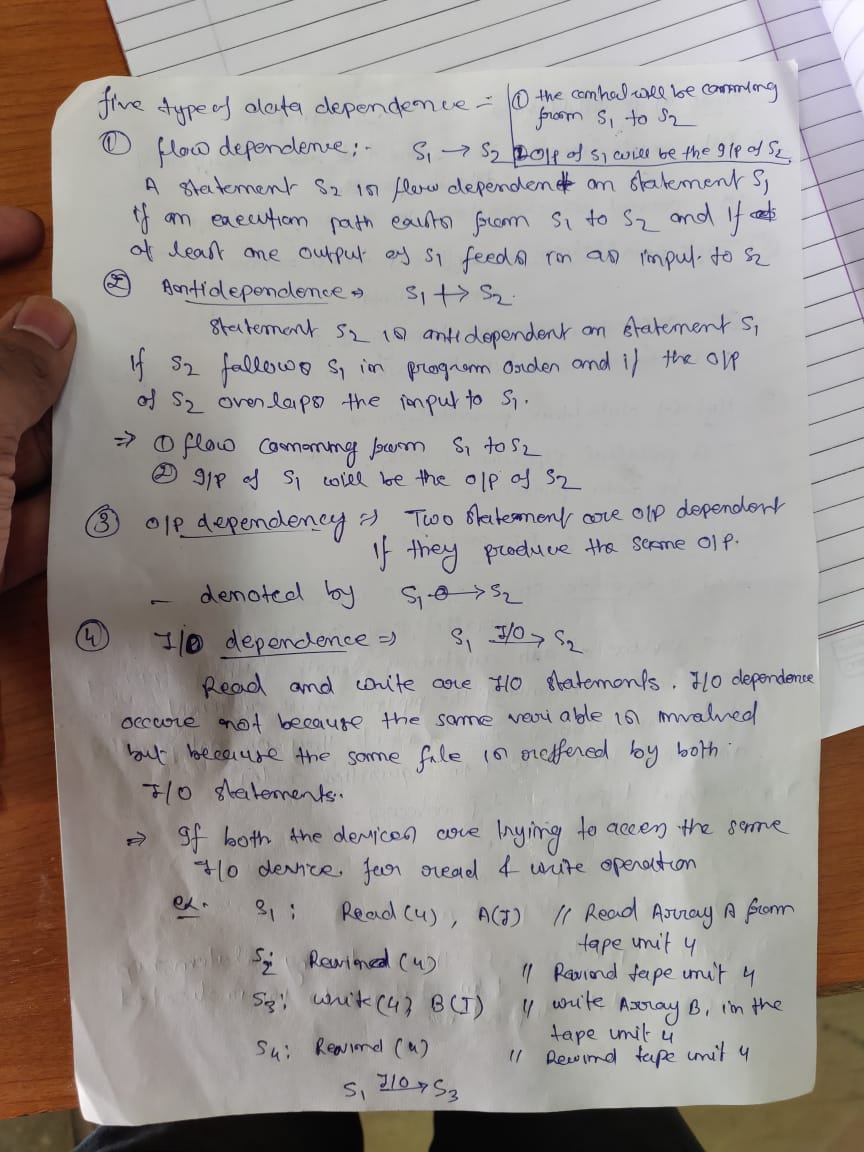 five type of data dependence :-
① the control will be comming
from S₁ to S₂
① flow dependence :- S₁ → S₂ ② O/P of S₁ will be the I/P of S₂
A statement S₂ is flow dependent on statement S₁
if an execution path exists from S₁ to S₂ and if
at least one output of S₁ feeds in as input to S₂
② Antidependence ⇒ S₁ +→ S₂.
Statement S₂ is antidependent on statement S₁
if S₂ follows S₁ in program order and if the O/P
of S₂ overlaps the input to S₁.
⇒ ① flow comming from S₁ to S₂
② I/P of S₁ will be the O/P of S₂
③ O/P dependency ⇒ Two statement are O/P dependent
if they produce the same O/P.
- denoted by S₁ o→ S₂
④ I/O dependence ⇒ S₁ I/O→ S₂
Read and write are I/O statements. I/O dependence
occure not because the same variable is involved
but because the same file is reffered by both
I/O statements.
⇒ If both the devices are trying to access the same
I/O device for read & write operation
ex. S₁ : Read (4), A(I) // Read Array A from
tape unit 4
S₂: Rewined (4) // Rewind tape unit 4
S₃: write (4), B(I) // write Array B, in the
tape unit 4
S₄: Rewind (4) // Rewind tape unit 4
S₁ I/O→ S₃